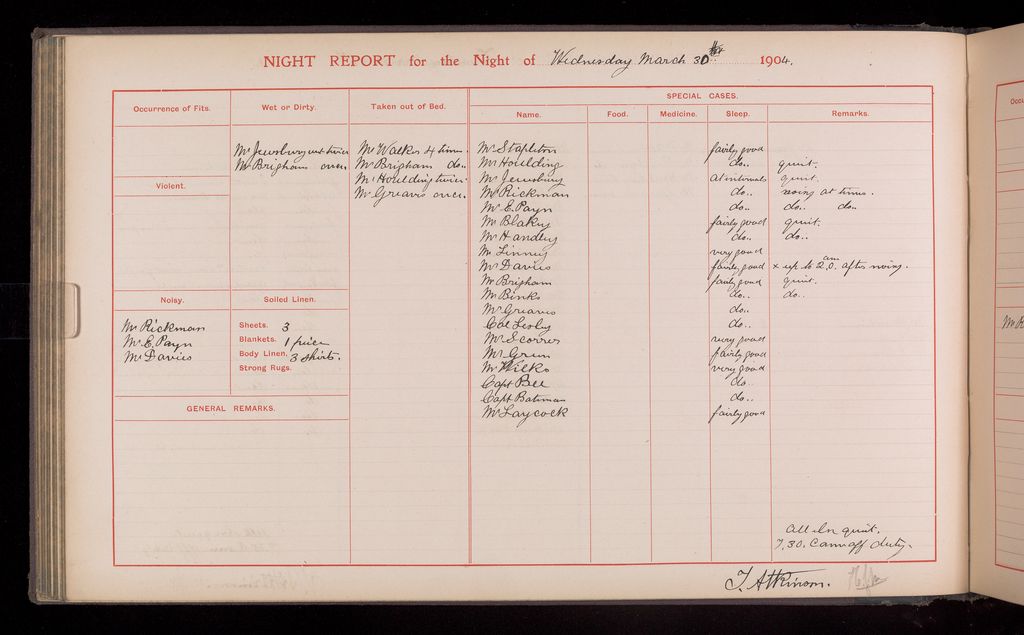 NIGHT REPORT for the Night of Wednesday March 30th 1904.
Occurrence of Fits.
Wet or Dirty.
Taken out of Bed.
SPECIAL CASES.
Name. Food. Medicine. Sleep. Remarks.
Mr Jewsbury wet twice
Mr Brigham once.
Mr Walker 4 times.
Mr Brigham do..
Mr Houlding twice.
Mr Greaves once.
Violent.
Noisy.
Mr Rickman
Mr E. Payn
Mr Davies
Soiled Linen.
Sheets. 3
Blankets. 1 piece
Body Linen. 3 shirts.
Strong Rugs.
GENERAL REMARKS.
Mr Stapleton fairly good
Mr Houlding do.. quiet.
Mr Jewsbury at intervals quiet.
Mr Rickman do.. noisy at times.
Mr E. Payn do.. do.. do..
Mr Blakey fairly good quiet.
Mr Handley do.. do..
Mr Linney very good
Mr Davies fairly good x up to 2.0. am after noisy.
Mr Brigham fairly good quiet.
Mr Binks do.. do..
Mr Greaves do..
Col Lesley do..
Mr Scorrer very good
Mr Green fairly good
Mr Wilks very good
Capt Bee do..
Capt Bateman do..
Mr Laycock fairly good
All else quiet.
7.30. Came off duty.
T. Atkinson.